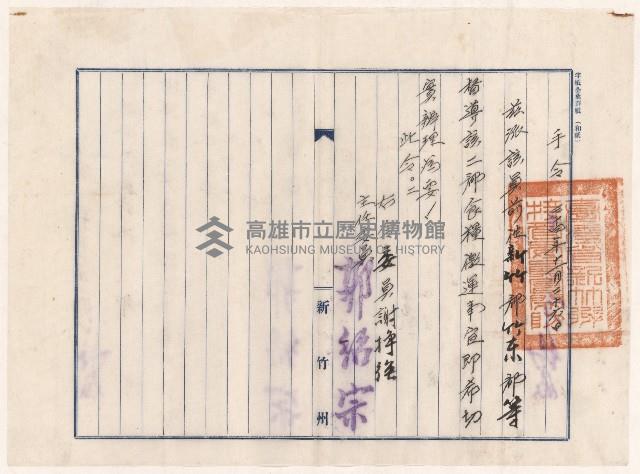 手令
茲派該員前赴新竹郡竹东郡等
指導該二郡食糧徵運事宜即希切
實辦理為要!
此令。
右委員謝掙強
主任委員
郭紹宗
新竹州
高雄市立歷史博物館
KAOHSIUNG MUSEUM OF HISTORY